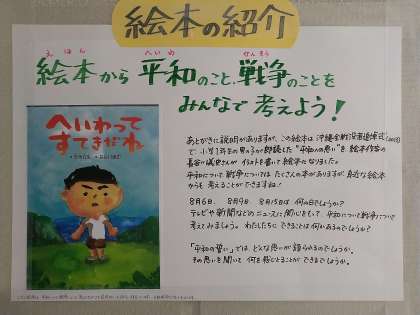 絵本の紹介
えほん へいわ せんそう
絵本から 平和のこと、戦争のことを
みんなで 考えよう!
へいわって
すてきだね
あとがきに説明がありますが、この絵本は 沖縄全戦没者追悼式
で、小学1年生の男の子が朗読した "平和の思い" を 絵本作家の
長谷川義史さんが イラストを書いて 絵本になりました。
平和について 戦争については たくさんの本がありますが、身近な絵本
からも 考えることができますね!
8月6日、 8月9日、 8月15日は 何の日でしょうか?
テレビや新聞などの ニュースに関心をもって、平和について 戦争について
考えてみましょう。 わたしたちに できることは 何があるのでしょうか?
「平和の誓い」では、どんな思いが 語られるのでしょうか。
その思いを聞いて 何を感じとることが できるでしょうか。